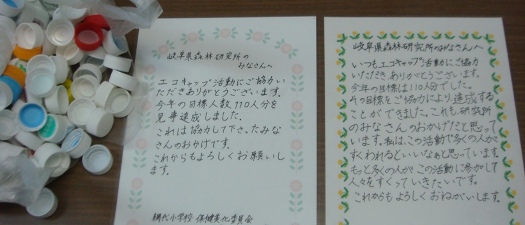 岐阜県森林研究所の
みなさんへ
エコキャップ活動にご協力い
ただきありがとうございます。
今年の目標人数110人分を
見事達成しました。
これは協力して下さったみな
さんのおかげです。
これからもよろしくお願いしま
す。
小学校 保健美化委員会
岐阜県森林研究所のみなさんへ
いつもエコキャップ活動にご協力
いただきありがとうございます。
今年の目標は110人分でした。
その目標をご協力により、達成する
ことができました。これも、研究所
のみなさんのおかげだと思って
います。私は、この活動で多くの人が
すくわれるといいなぁと思っています。
もっと多くの人がこの活動に参加して
人々をすくっていきたいです。
これからもよろしくおねがいします。